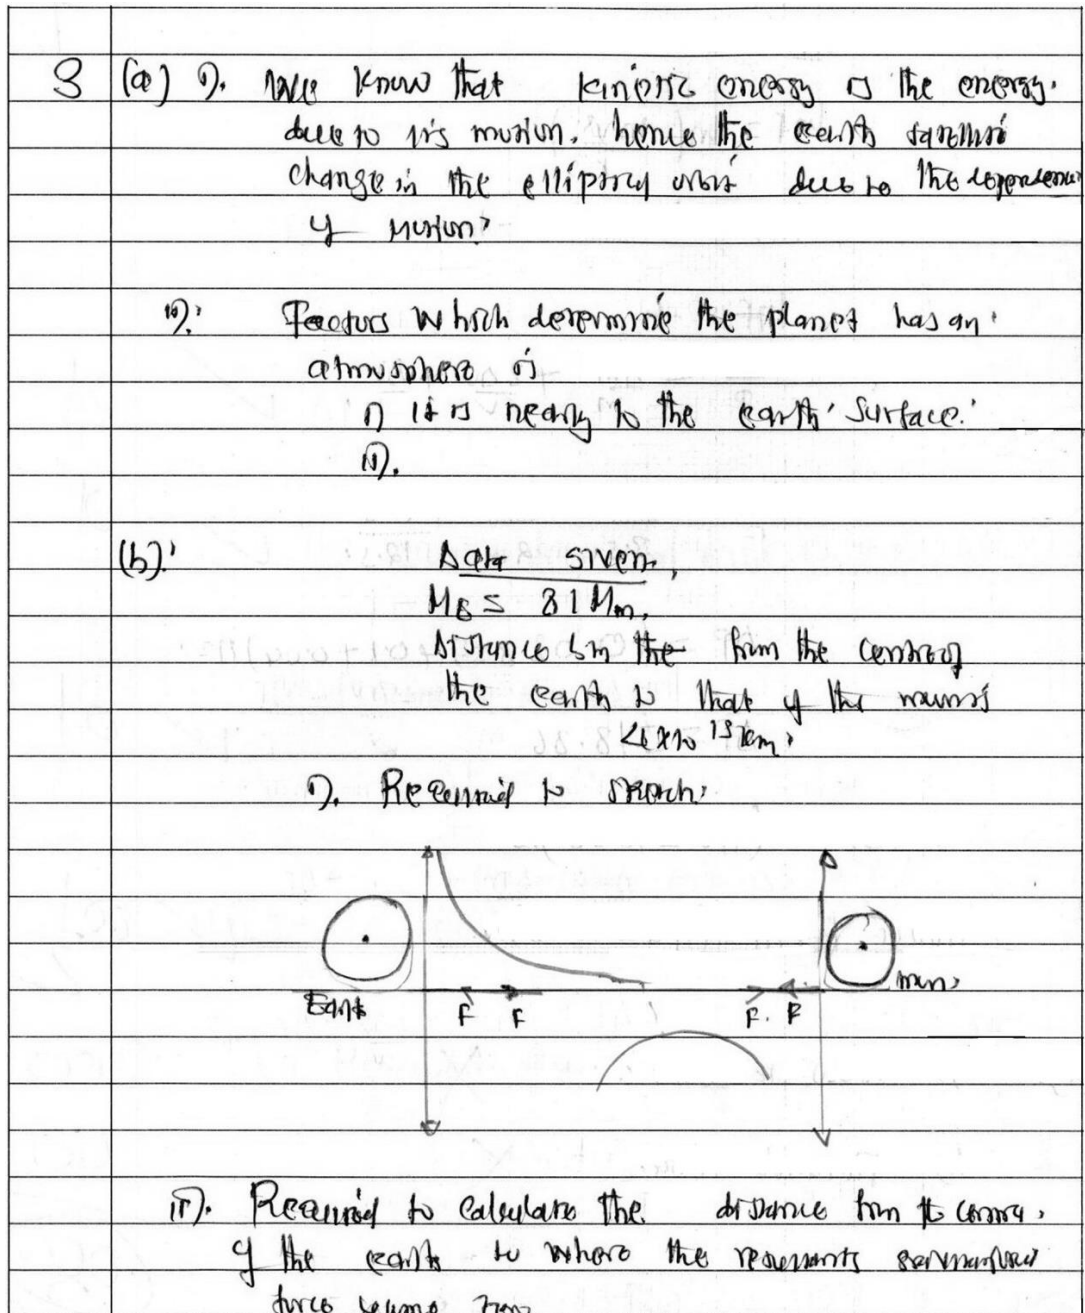 3 (a) i). We know that kinetic energy is the energy.
due to its motion. hence the earth satellite
change in the elliptical orbit due to the dependence
of motion.
ii). Factors which determine the planet has an
atmosphere is
i) it is nearly to the earth surface.
ii).
(b). Data given,
81 Mm.
Distance btn the from the centre of
the earth to that of the moon is
km.
i). Required to sketch.
Earth F F F. F moon
ii). Required to calculate the distance from the centre
of the earth to where the resultants gravitational
force zero